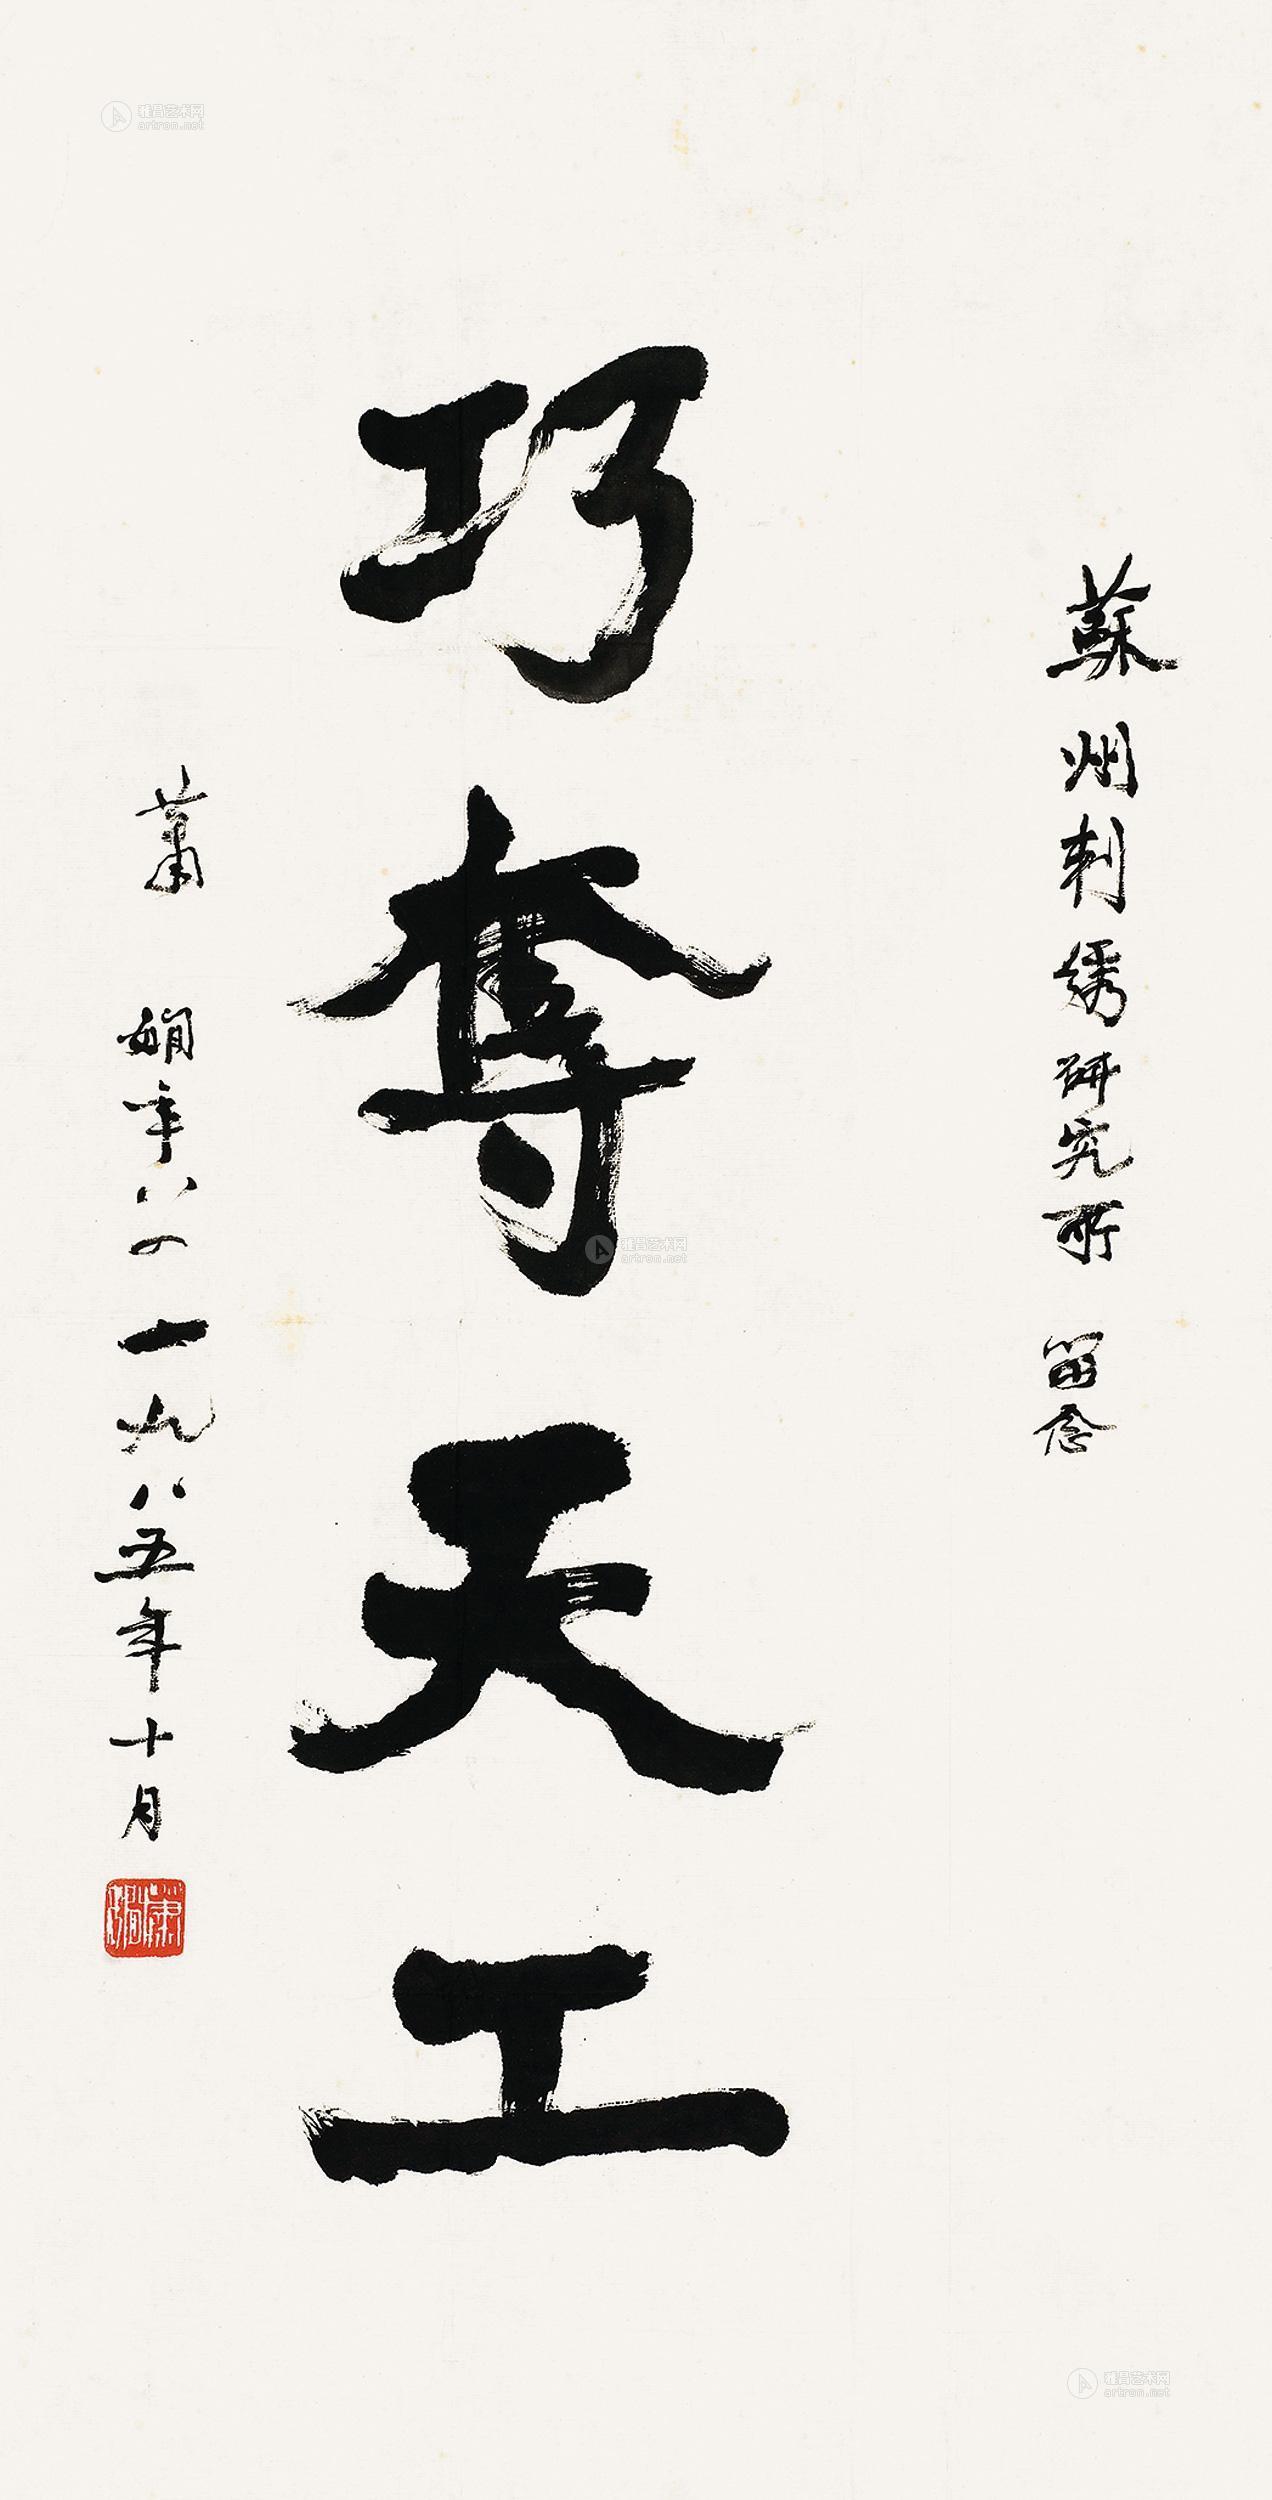 蘇州刺绣研究所 留念
巧奪天工
蕭嫻年八四一九八五年十月
蕭嫻
雅昌艺术网
artron.net
雅昌艺术网
artron.net
雅昌艺术网
artron.net